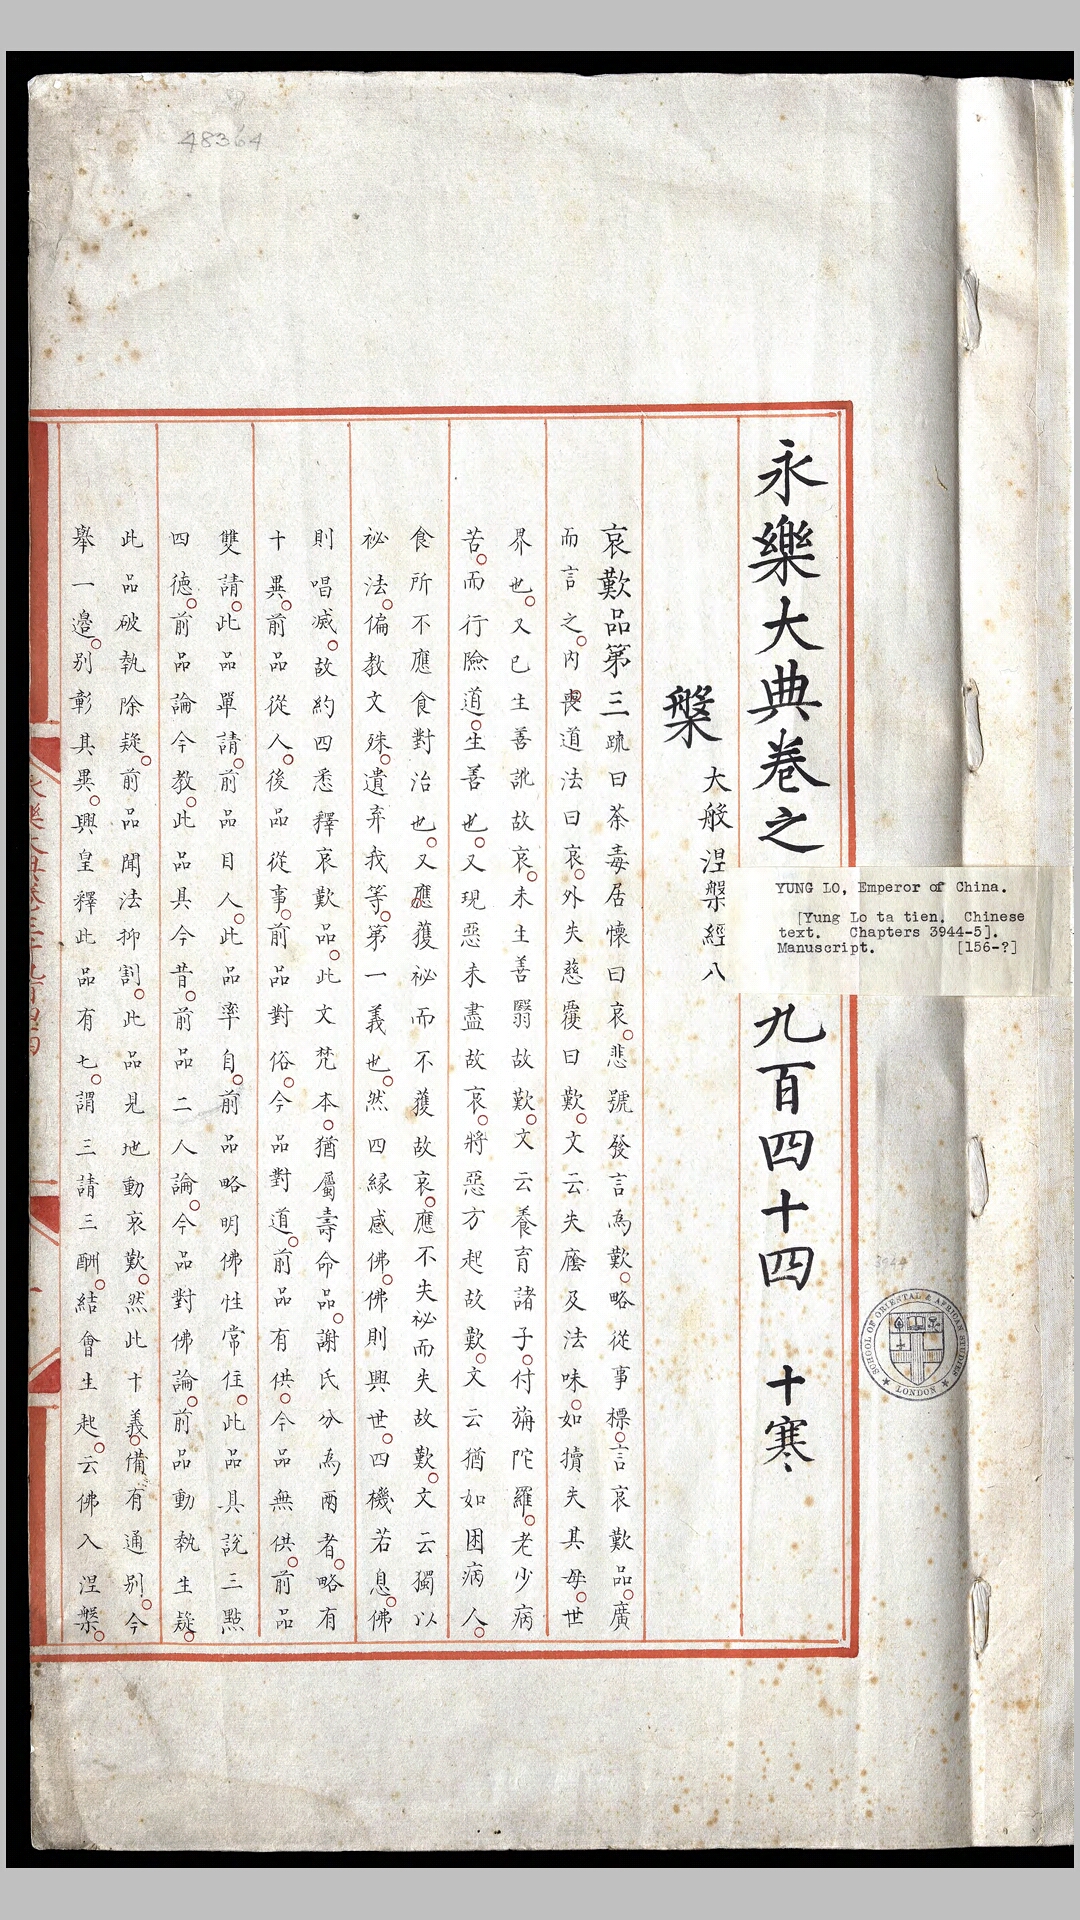 48364
永樂大典卷之
九百四十四 十寒
YUNG LO, Emperor of China.
[Yung Lo ta tien. Chinese
text. Chapters 3944-5].
Manuscript. [156-?]
3944
SCHOOL OF ORIENTAL & AFRICAN STUDIES
LONDON
槃 大般涅槃經八
哀歎品第三疏曰荼毒居懷曰哀悲號發言為歎略從事標言哀歎品廣
而言之內喪道法曰哀外失慈覆曰歎文云失廕及法味如犢失其母世
界也又已生善訛故哀未生善翳故歎文云養育諸子付旃陀羅老少病
苦而行險道生善也又現惡未盡故哀將惡方起故歎文云猶如困病人
食所不應食對治也又應獲祕而不獲故哀應不失祕而失故歎文云獨以
祕法偏教文殊遺弃我等第一義也然四緣感佛佛則興世四機若息佛
則唱滅故約四悉釋哀歎品此文梵本猶屬壽命品謝氏分為兩者略有
十異前品從人後品從事前品對俗今品對道前品有供今品無供前品
雙請此品單請前品目人此品率自前品略明佛性常住此品具說三點
四德前品論今教此品具今昔前品二人論今品對佛論前品動執生疑
此品破執除疑前品聞法抑割此品見地動哀歎然此十義備有通別今
舉一邊別彰其異興皇釋此品有七謂三請三酬結會生起云佛入涅槃